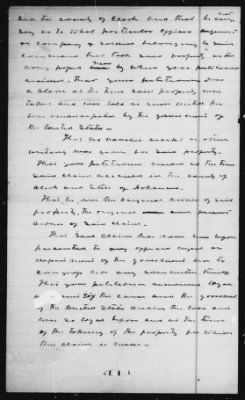 and the county of Clark and that he can not
say as to what particular officer regiment
or company of soldiers belonging to said
command that took said property nor
was
resided. That your petitioner was
a slave at the time said property was
taken and was held as such until he
was emancipated by the government of
the United States.
That no voucher receipt or other
writing was given for said property.
That your petitioner resided at the time
said claim accrued in the county of
Clark and State of Arkansas.
That he was the original owner of said
property, the original and present
owner of said claim.
That said claim has never been
presented to any officer agent or
department of the government nor to
congress nor any committee thereof
That your petitioner remained loyal
to the cause and the government
of the United States during the war and
was so loyal before and at the time
of the taking of the property for which
this claim is made.